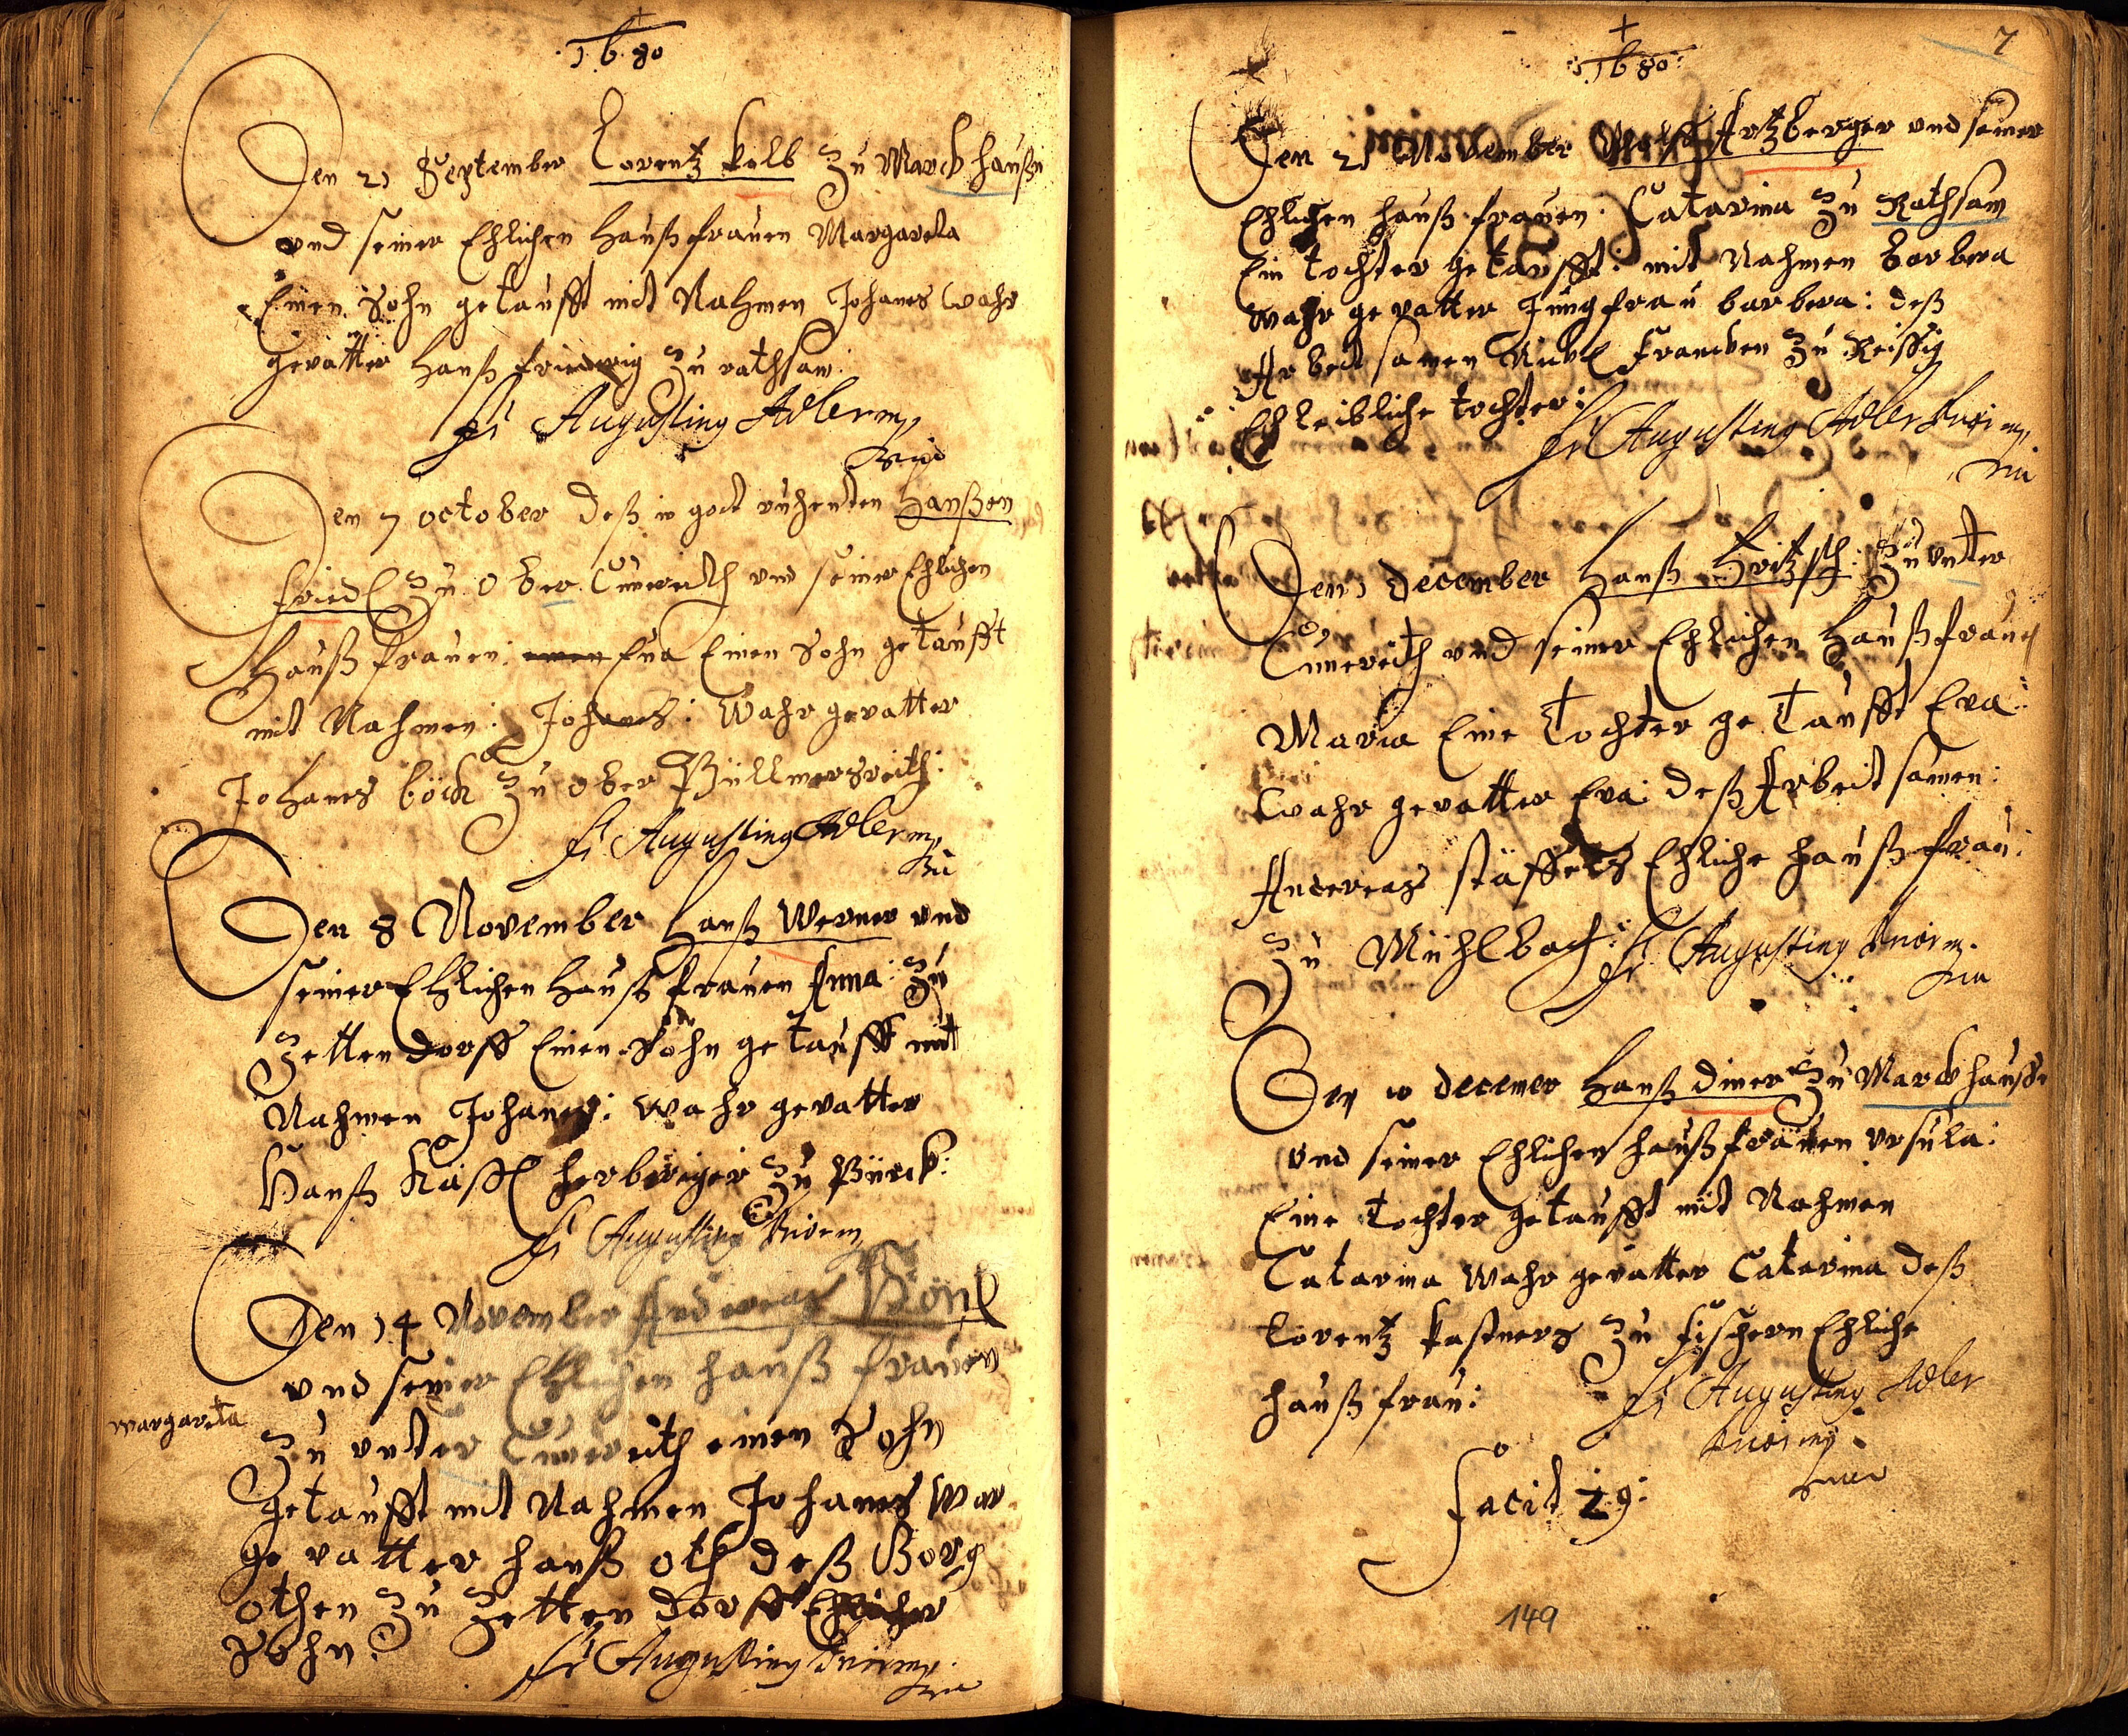 1680
Den 21 September Lorentz Kolb Zu Marckhaußn
vnd seiner Ehlichen Haußfrauen Margareta
Einen Sohn getaufft mit Nahmen Johanes wahr
gevatter Hanß Zu rathsam:
fr Augusting Adler mp
Den 7 october deß in gott ruhenten Hanßen
friedl Zu Ober Cunreith vnd seiner Ehlichen
Haußfrauen: Eua Einen Sohn getaufft
mit Nahmen: Johanes: Wahr gevatter
Johanes böck Zu ober Püllmersreith:
fr Augusting Adler mp
Den 8 November Hanß Werner vnd
seiner Ehlichen Haußfrauen Anna: Zu
Zettendorff Einen Sohn getaufft mit
Nahmen Johanes: wahr gevatter
Hanß herberiger Zu Pürck:
fr Augusting
Den 14 November Andereas Sönl
vnd seiner Ehlichen hauß frauen
margareta
Zu vnter Cunreith einen Sohn
getaufft mit Nahmen Johanes war
gevatter hanß oth deß Georg
othen Zu Zettendorff Ehlicher
Sohn:
fr Augusting
1680
7
Den 21 November Wolff Artzberger vnd seiner
Ehlichen haußfrauen: Catarina Zu Rathsam
Ein tochter getaufft: mit Nahmen barbera
wahr gevatter Jungfrau barbera: deß
Arbeitsamen Nickl francken Zu Reissig
Ehleibliche tochter:
fr Augusting Adler
Den 1 december Hanß Zu vnter
Cunreith vnd seiner Ehlichen Haußfrauen
Maria Eine Tochter getaufft Eva:
wahr gevatter Eva: deß Arbeitsamen:
Andereas Ehliche haußfrau:
Zu Mühlbach:
fr Augusting
Den 10 decemer Hanß diner Zu Marckhauße
vnd seiner Ehlichen haußfrauen vrsula:
Eine tochter getaufft mit Nahmen
Catarina wahr gevatter Catarina deß
Lorentz kastners Zu fischern Ehliche
haußfrau:
fr Augusting Adler
facit 29:
149